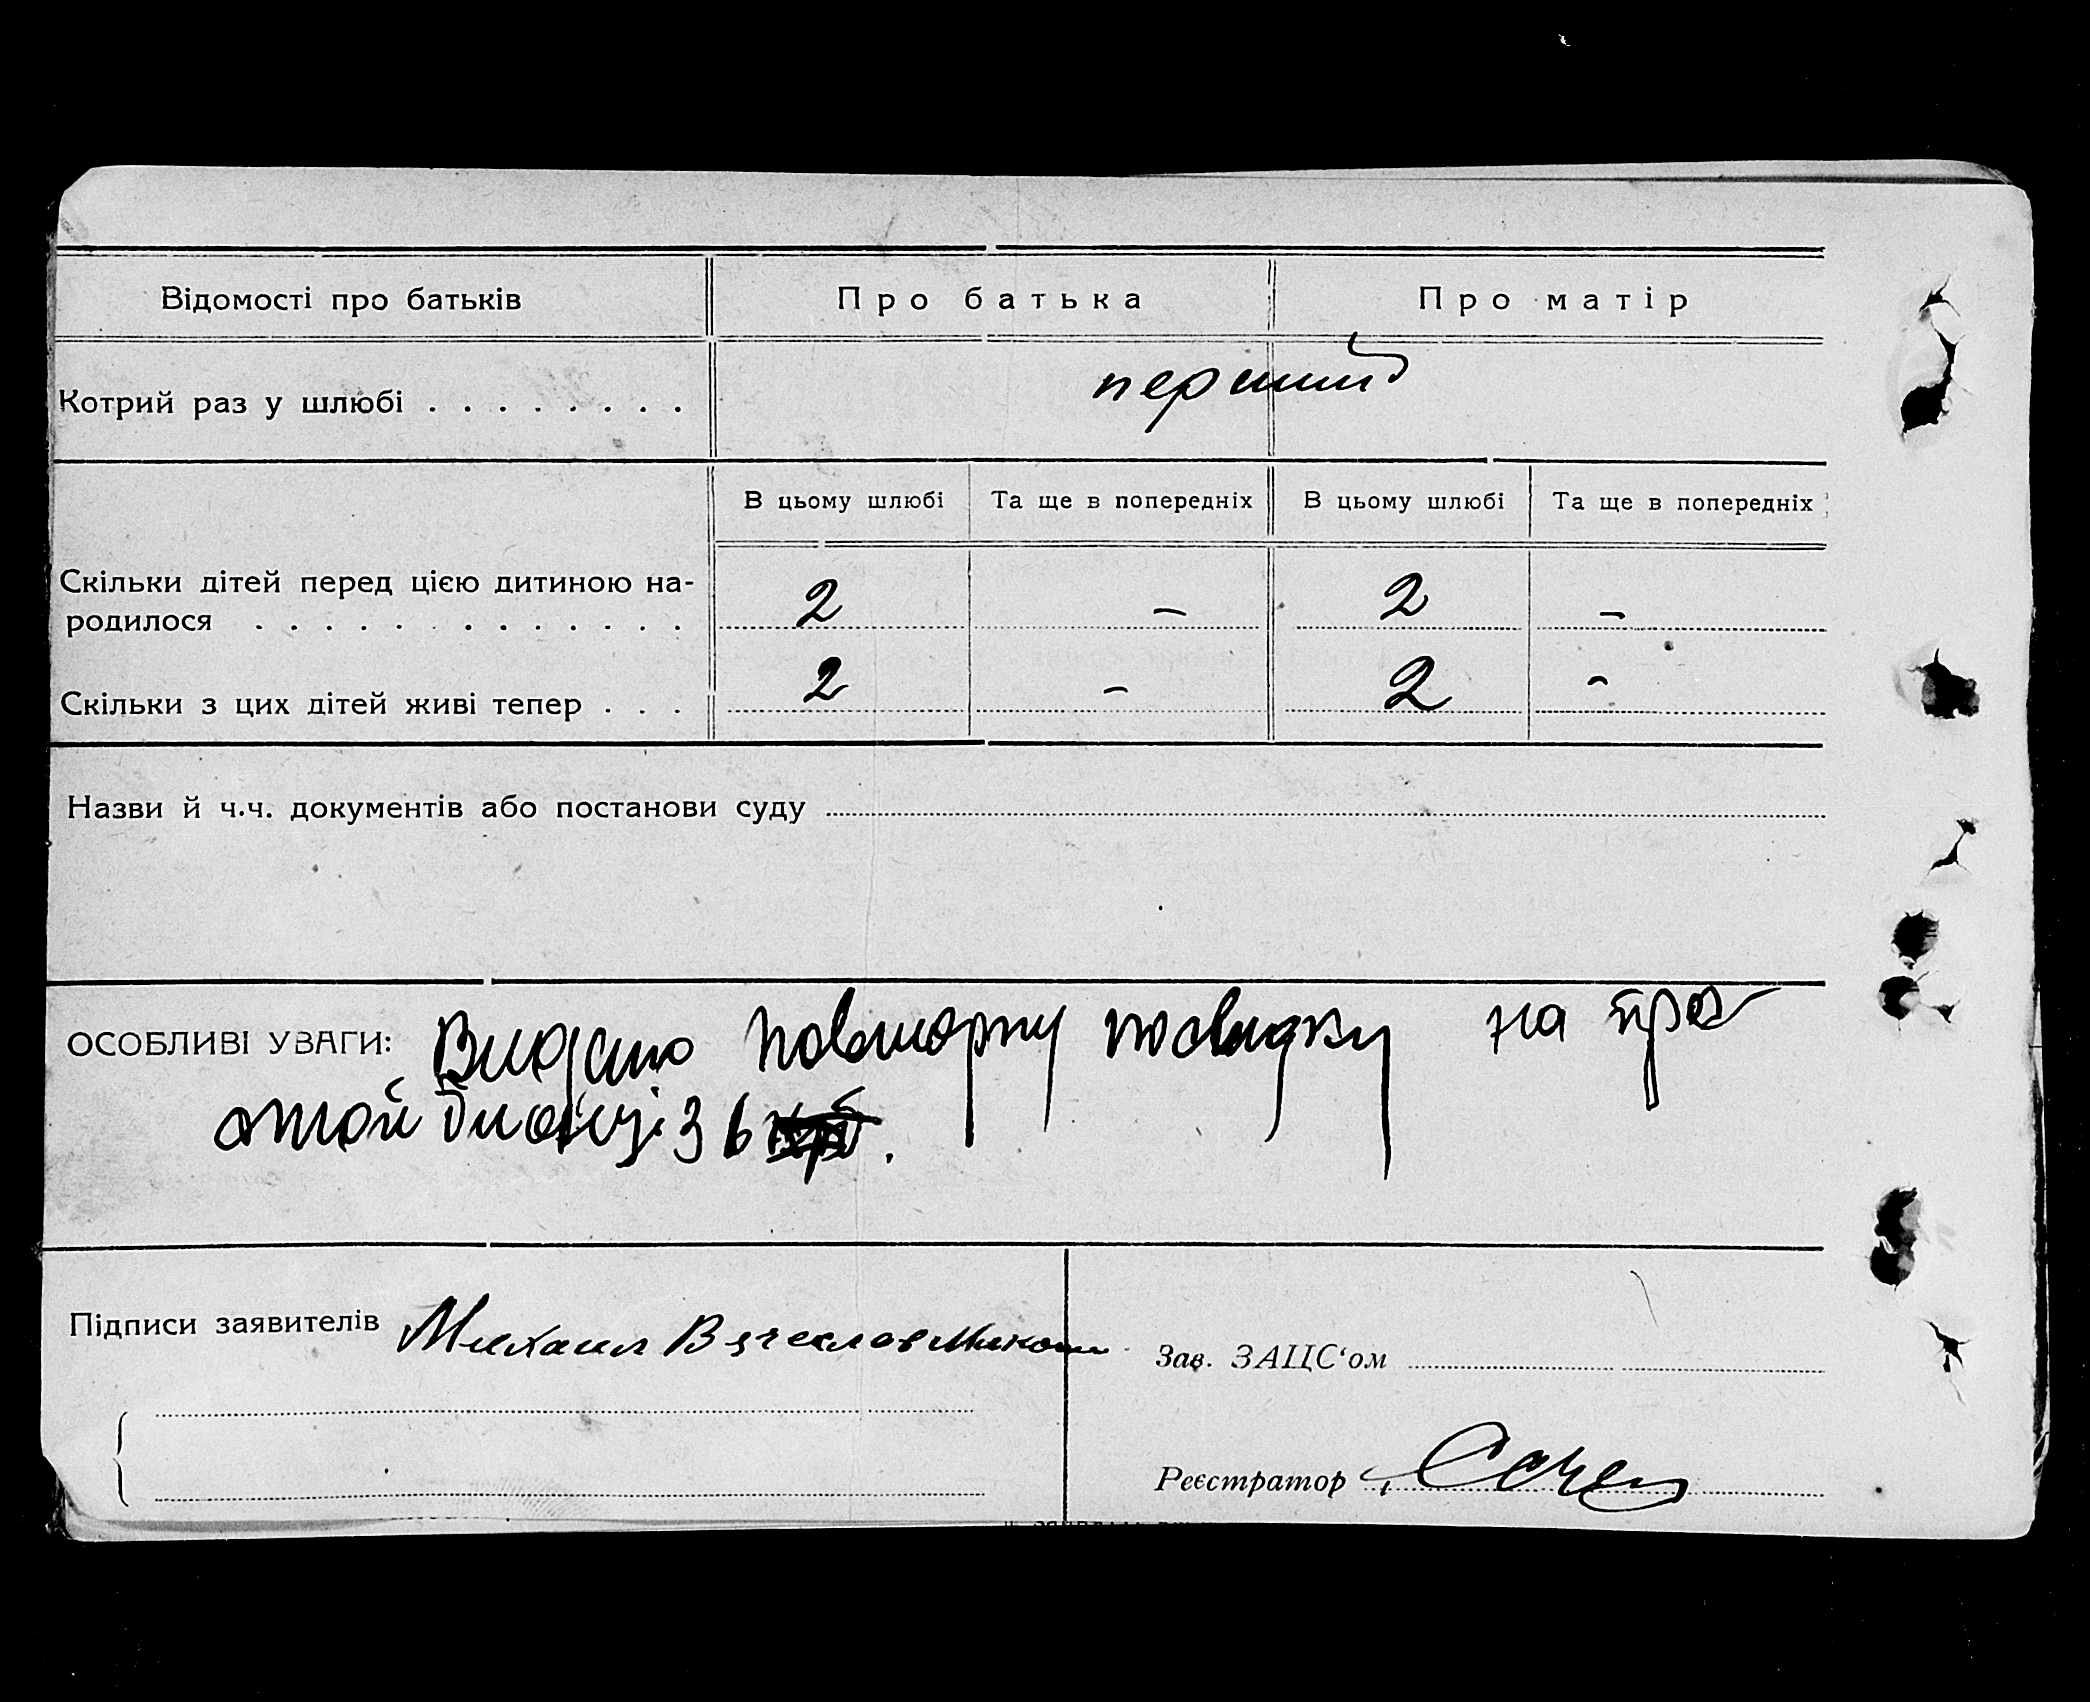 Відомості про батьків
Про батька
Про матір
Котрий раз у шлюбі . . . . . . . .
перший
В цьому шлюбі
Та ще в попередніх
В цьому шлюбі
Та ще в попередніх
Скільки дітей перед цією дитиною на-
родилося . . . . . . . . . . . . .
2
–
2
–
Скільки з цих дітей живі тепер . . .
2
–
2
–
Назви й ч.ч. документів або постанови суду
ОСОБЛИВІ УВАГИ: Видано повторну посвідку на
З 6
Підписи заявителів Михаил Вячеслав
Зав. ЗАЦС‘ом
Реєстратор